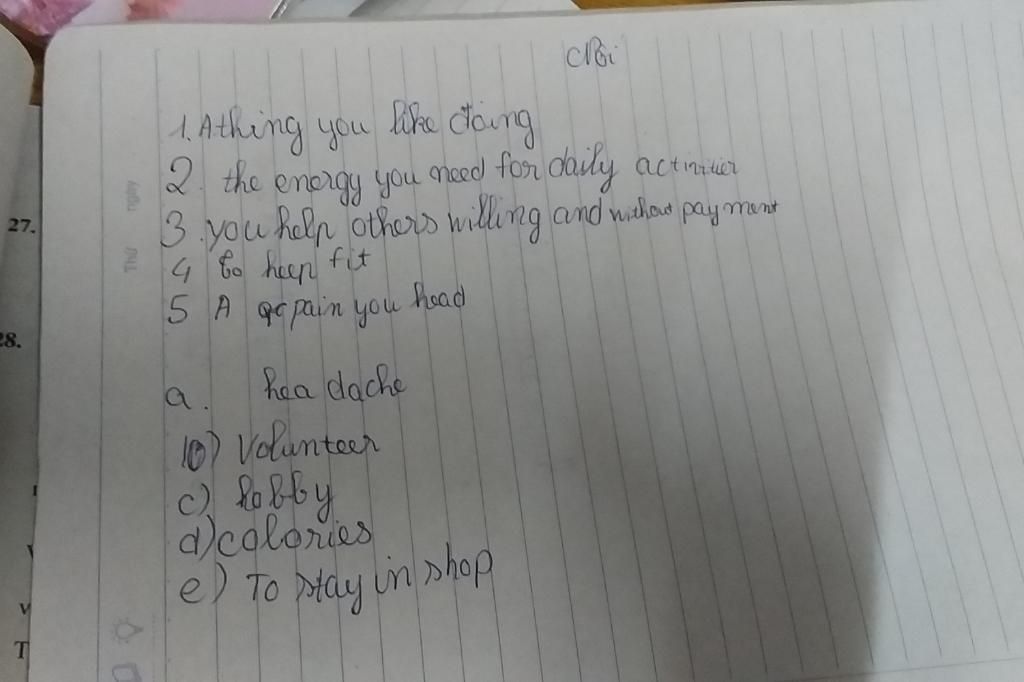 1. A thing you like doing
2. the energy you need for daily activitier
3. you help others willing and without payment
4 to keep fit
5 A pain you head
a. headache
b) Volunteer
c) hobby
d) calories
e) To stay in shop
27.
28.
Thứ
ngày
V
T